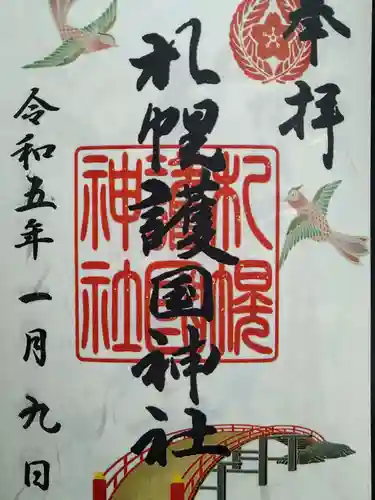 奉拝
札幌護国神社
札幌
護国
神社
令和五年一月九日